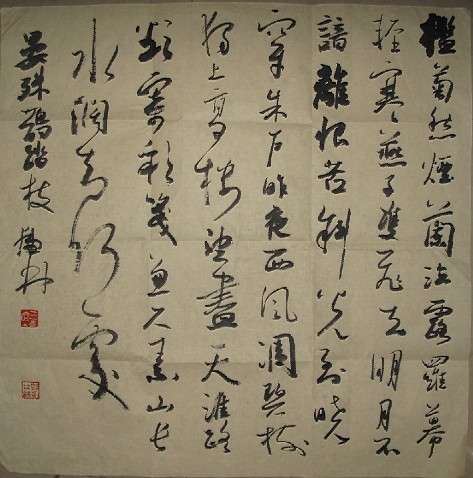 檻菊愁煙蘭泣露羅幕
輕寒燕子雙飛去明月不
諳離恨苦斜光到曉
穿朱戶昨夜西風凋碧樹
獨上高樓望盡天涯路
欲寄彩箋兼尺素山長
水闊知何處
晏殊鵲踏枝